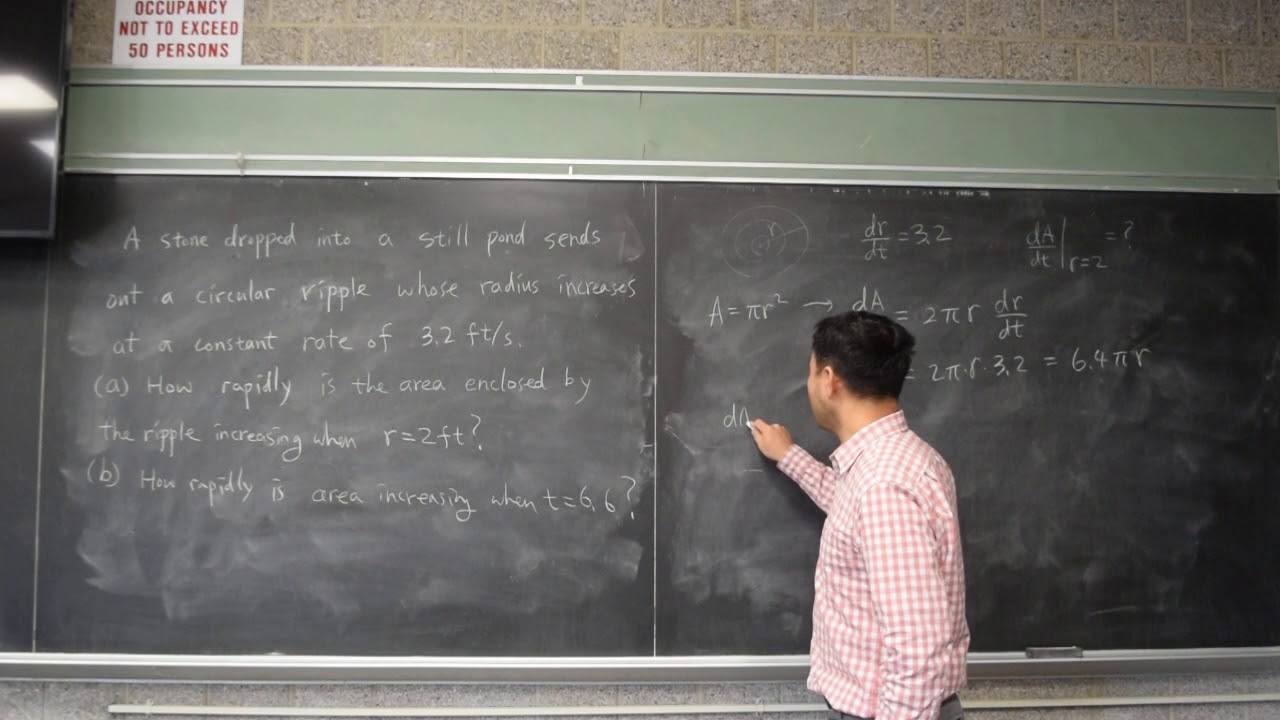 OCCUPANCY
NOT TO EXCEED
50 PERSONS
A stone dropped into a still pond sends
out a circular ripple whose radius increases
at a constant rate of 3.2 ft/s.
(a) How rapidly is the area enclosed by
the ripple increasing when r=2ft?
(b) How rapidly is area increasing when t=6.6?
r
dr/dt = 3.2
dA/dt | r=2 = ?
A = πr² → dA = 2πr dr/dt
= 2π·r·3.2 = 6.4πr
dA